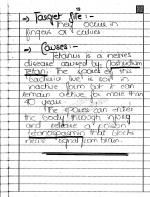 ⇒ Target site :-
They occur in
fingers or calves
⇒ Causes:-
Tetanus is a nerves
disease caused by Clostridium
Tetani. The spores of this
bacteria live is soil in
inactive form but it can
remain active for more than
40 years
The spores can enter
the body through injury
and release a poison
tetanospasmin that blocks
nerve signal from brain.